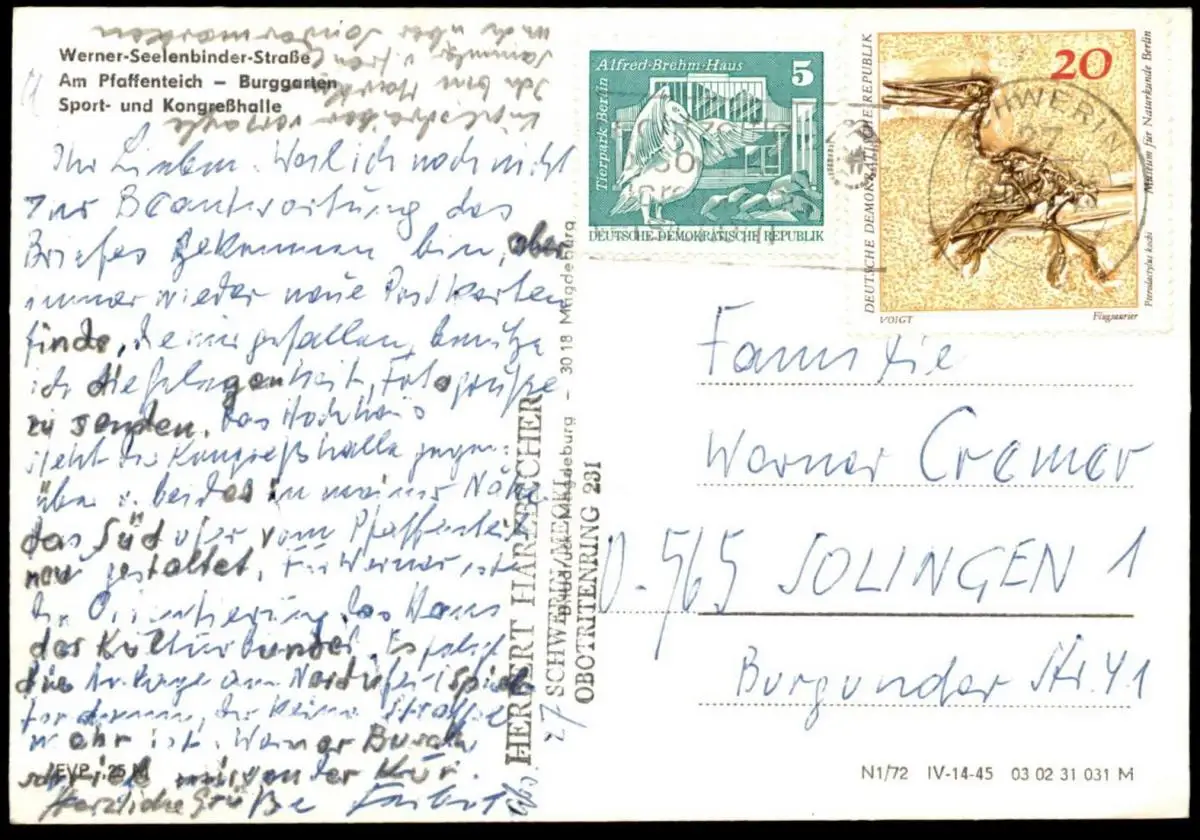 Werner-Seelenbinder-Straße
Am Pfaffenteich – Burggarten
Sport- und Kongreßhalle
Ihr Lieben. Weil ich noch nicht
zur Beantwortung des
Briefes gekommen bin, aber
immer wieder neue Postkarten
finde, die mir gefallen, benutze
ich die Gelegenheit, Fotogrüße
zu senden. Das Hochhaus
steht der Kongreßhalle gegen-
über u. beides in meiner Nähe
das Südufer vom Pfaffenteich
neu gestaltet. Für Werner ist
die Orientierung das Haus
des Kulturbundes. Es folgt
die Anlage am Nordufer
der keine Straße
mehr ist. Werner Busch
schrieb mir von der Kur.
Herzliche Grüße
Kugelschreiber versagte
Ich bin
Sammler v.
über Sondermarken
EVP -,25 M
Alfred-Brehm-Haus
5
Tierpark Berlin
DEUTSCHE DEMOKRATISCHE REPUBLIK
20
DEUTSCHE DEMOKRATISCHE REPUBLIK
Museum für Naturkunde Berlin
Pterodactylus kochi
VOIGT
Flugsaurier
SCHWERIN
27
Abs.
HERBERT HAREBUCHER
SCHWERIN/MECKL
OBOTRITENRING 231
27
Bild und Heimat
Magdeburg – 3018 Magdeburg
Familie
Werner Cremer
D-565 SOLINGEN 1
Burgunder Str. 41
N1/72 IV-14-45 03 02 31 031 M